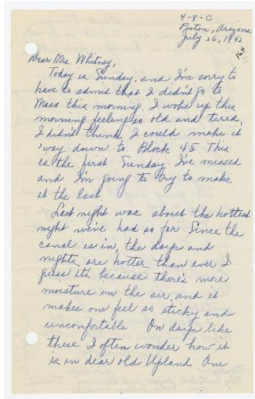 4-8-C
Poston, Arizona
July 26, 1942
Dear Mrs. Whitney,
Today is Sunday, and I'm sorry to
have to admit that I didn't go to
Mass this morning. I woke up this
morning feeling so old and tired,
I didn't think I could make it
'way down to Block 45. This
is the first Sunday I've missed
and I'm going to try to make
it the last.
Last night was about the hottest
night we've had so far. Since the
canal is in, the days and
nights are hotter than ever. I
guess it's because there's more
moisture in the air, and it
makes one feel so sticky and
uncomfortable. On days like
these I often wonder how it
is in dear old Upland. One